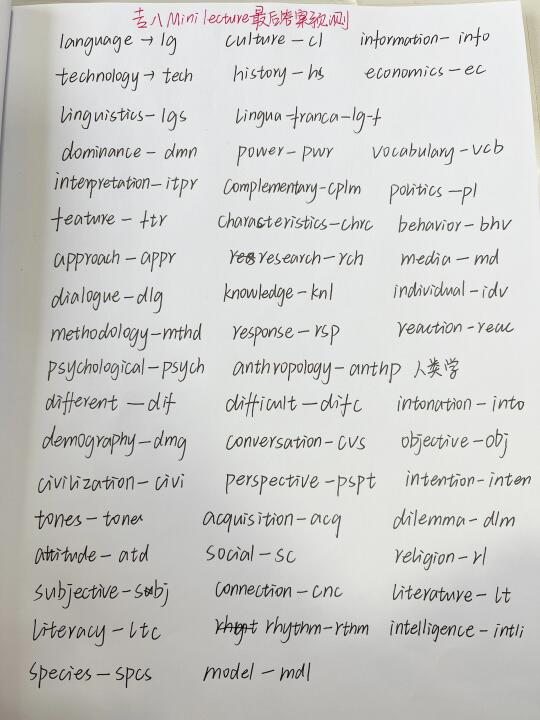 专八Mini lecture最后答案预测
language → lg culture - cl information - info
technology → tech history - hs economics - ec
linguistics - lgs lingua-franca - lg-f
dominance - dmn power - pwr vocabulary - vcb
interpretation - itpr complementary - cplm politics - pl
feature - ftr characteristics - chrc behavior - bhv
approach - appr research - rch media - md
dialogue - dlg knowledge - knl individual - idv
methodology - mthd response - rsp reaction - reac
psychological - psych anthropology - anthp 人类学
different - dif difficult - difc intonation - into
demography - dmg conversation - cvs objective - obj
civilization - civi perspective - pspt intention - inten
tones - tones acquisition - acq dilemma - dlm
attitude - atd social - sc religion - rl
subjective - subj connection - cnc literature - lt
literacy - ltc rhythm - rthm intelligence - intli
species - spcs model - mdl